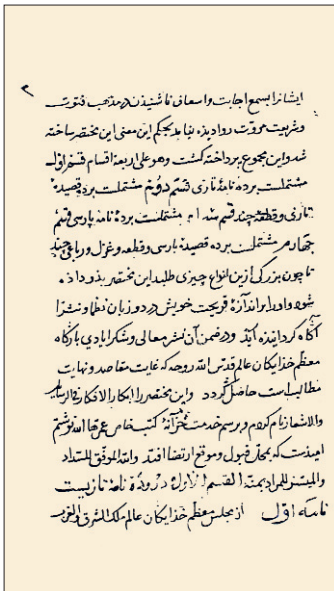 ایشانرا بسمع اجابت و اسعاف ناشنیذن در مذهب فتوت
و شریعت مروت روا دیذه نیامذ بحکم این معنی این مختصر ساخته
شذ و این مجموع پرداخته گشت و هو علی اربعة اقسام قسم اول
مشتملست بر ده نامهٔ تازی قسم دوم مشتملست بر ده قصیدهٔ
تازی و قطعهٔ چند قسم مشتملست بر ده نامهٔ پارسی قسم
چهارم مشتملست بر ده قصیدهٔ پارسی و قطعه و غزل و رباعی چند
تا چون بزرگی ازین انواع چیزی طلبد این مختصر بذو داذه
شوذ و او را بر اندازهٔ قریحت خویش در دو زبان نظما و نثرا
آگاه گردانیذه آیذ و در ضمن آن نشر معالی و شکر ایادی بارگاه
معظم خذایگان عالم قدس الله روحه که غایت مقاصد و نهایت
مطالب است حاصل گردد و این مختصر را ابکار الافکار فی الرسایل
و الاشعار نام کردم و برسم خدمت خزانهٔ کتب خاص عمرها الله نوشتم
امیذست که بمحل قبول و موقع ارتضا افتد والله الموفق للسداد
والمیسر للمراد بمنه القسم الاول در ده نامهٔ تازیست
نامهٔ اول از مجلس معظم خذایگان عالم ملک الشرق و الغرب